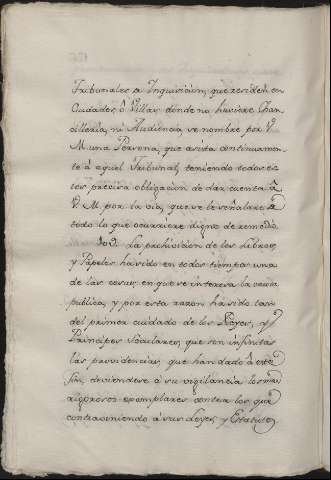 Tribunales de Inquisicion, que residen en
Ciudades, ô Villas, donde no huviere Chan
cilleria, ni Audiencia, se nombre por V.
M. una Persona, que asista continuamen-
te á aquel Tribunal, teniendo todos es
tos precisa obligacion de dar cuenta â
V. M. por la via, que se le señalare de
todo lo que ocurriere digno de remedio.
La prohivicion de los Libros,
y Papeles ha sido en todos tiempos una
de las cosas, en que se interesa la causa
publica, y por esta razon ha sido tan
del primer cuidado de los Reyes, y
Principes Seculares, que son infinitas
las providencias, que han dado â este
fin, deviendose â su vigilancia los mas
rigorosos exemplares contra los que
contraviniendo â sus Leyes, y Estatutos